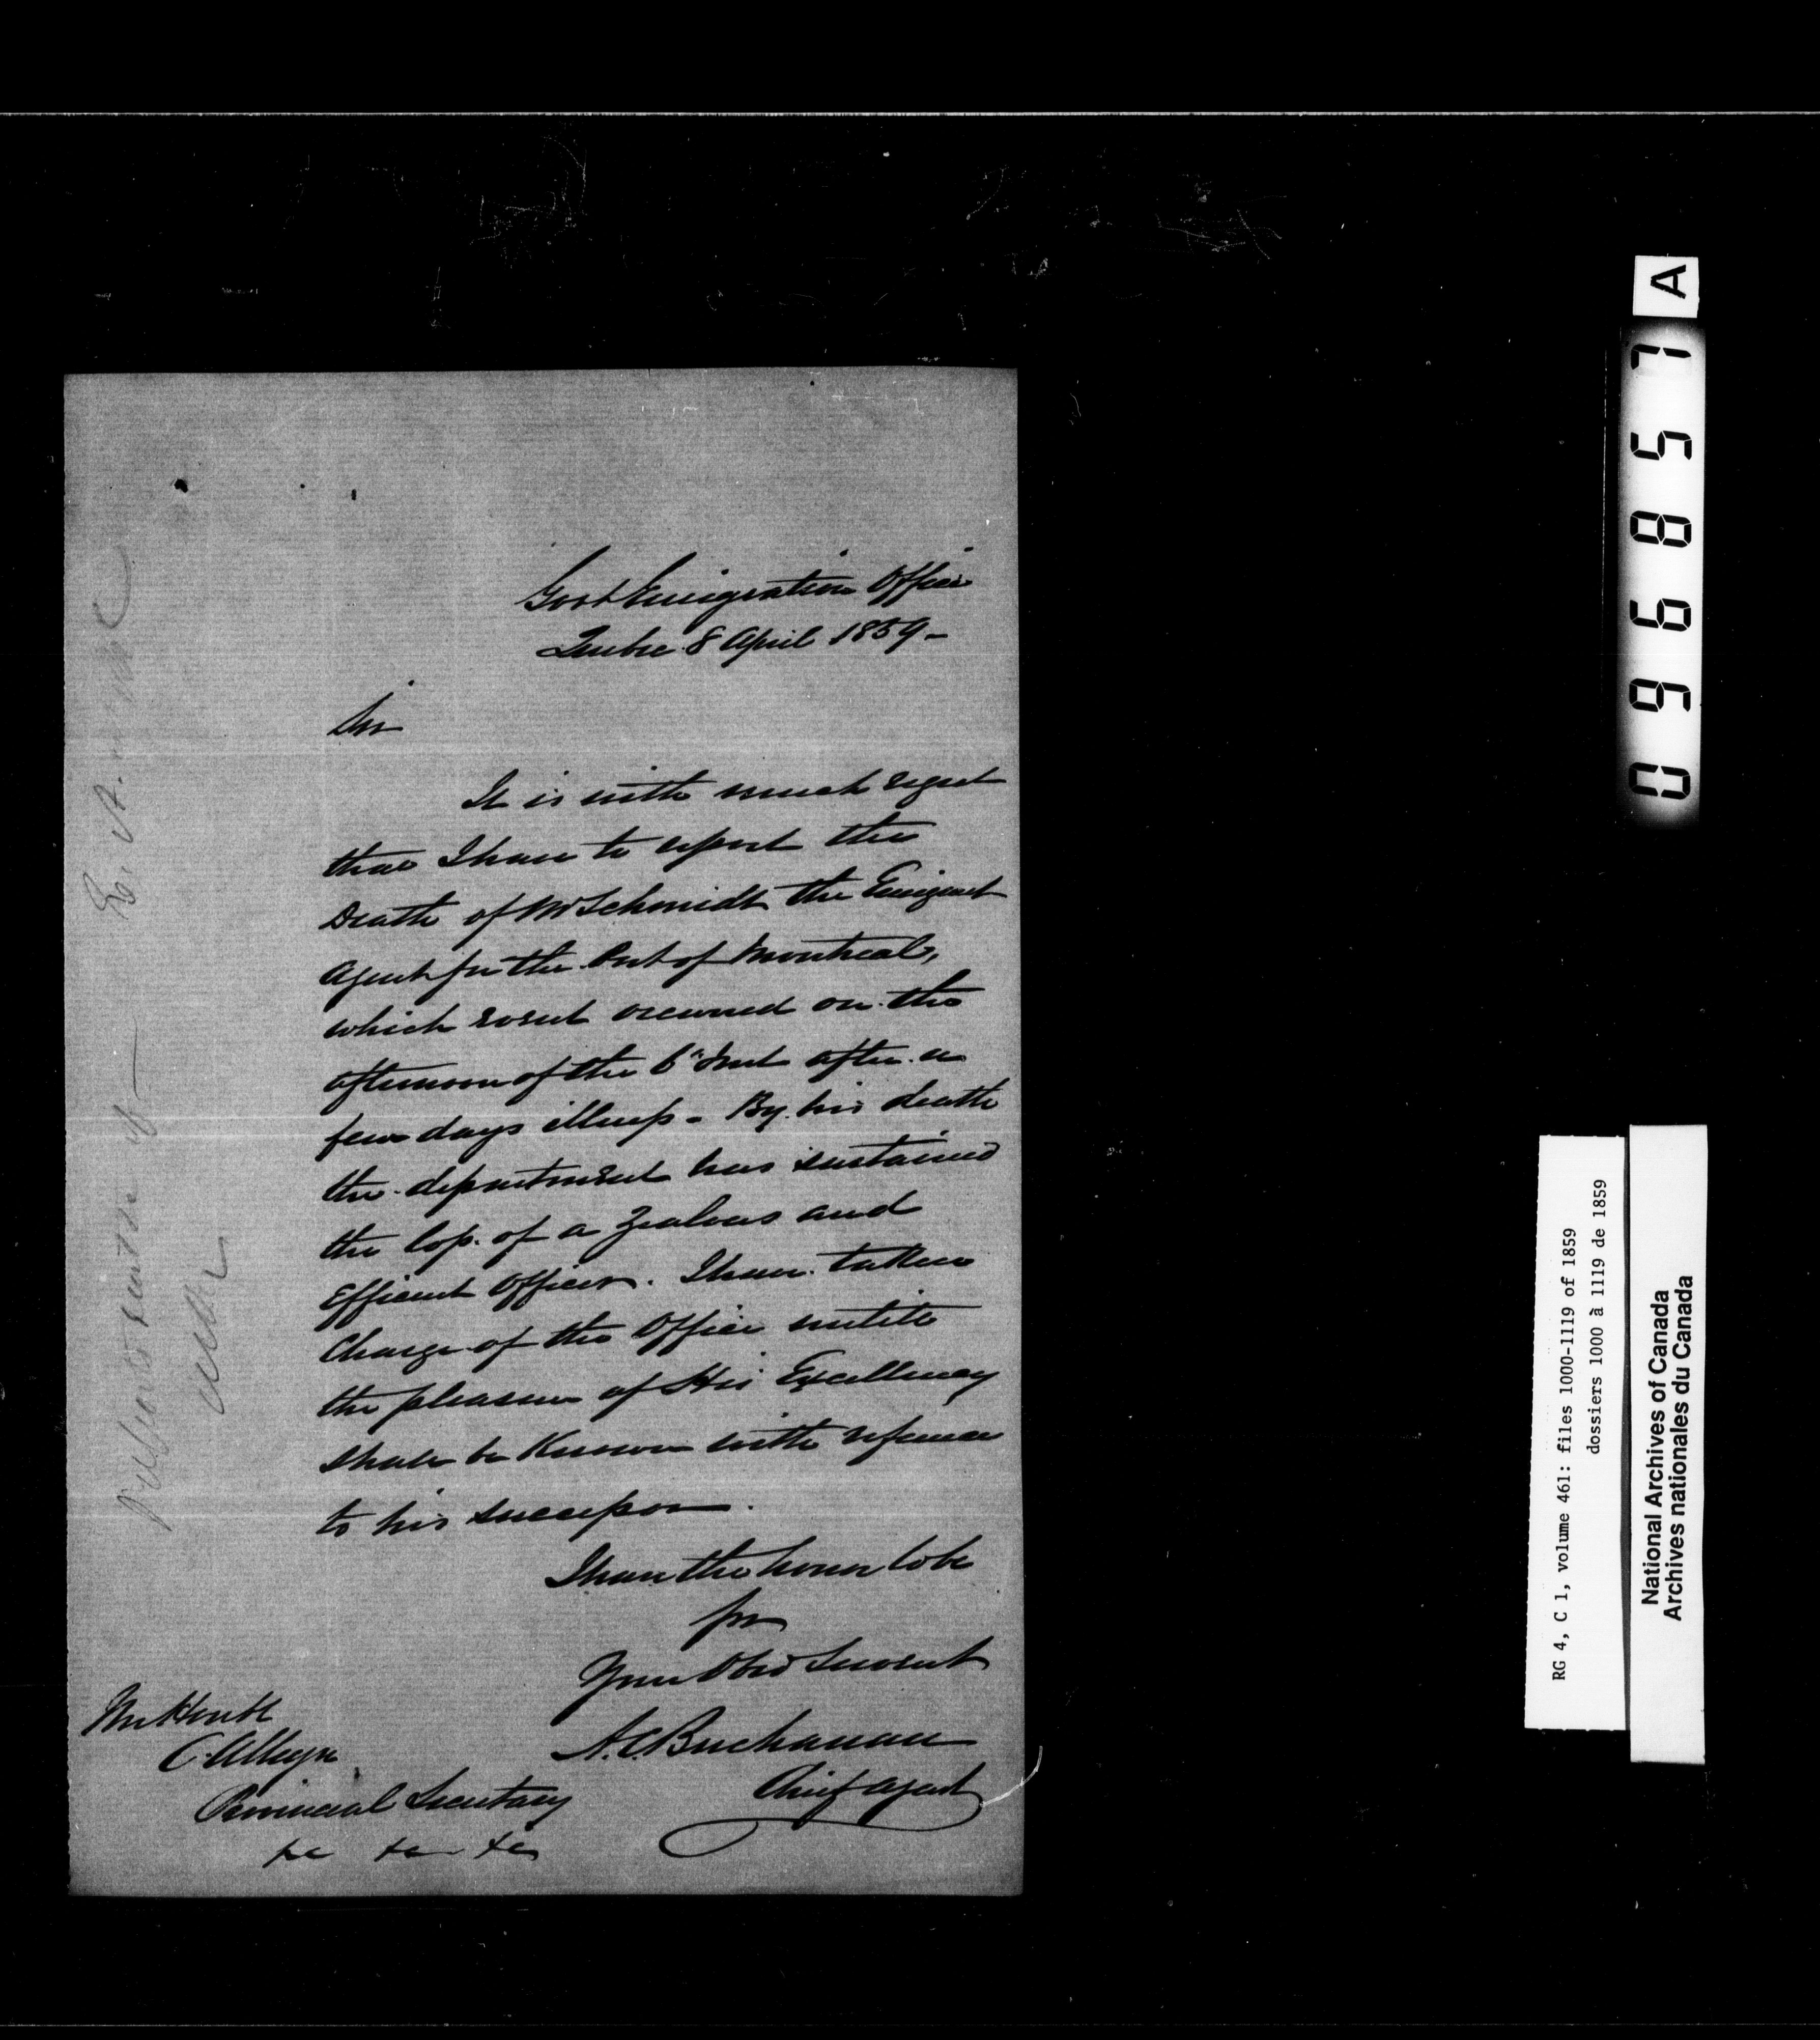 Govt Emigration Office
Quebec 8 April 1859-
Sir
It is with much regret
that I have to report the
Death of Mr Schmidt the Emigrant
Agent for the Port of Montreal,
which event occurred on the
afternoon of the 6" Inst after a
few days illness - By his death
the department has sustained
the loss of a Zealous and
Efficient Officer. I have taken
Charge of the Office until
the pleasure of His Excellency
shall be Known with reference
to his successor.
I have the honor to be
Sir
Your Obed Servant
A.C. Buchanan
Chief Agent
The Honble
C. Alleyn
Provincial Secretary
&c &c &c
A
096857
RG 4, C 1, volume 461: files 1000-1119 of 1859
dossiers 1000 à 1119 de 1859
National Archives of Canada
Archives nationales du Canada